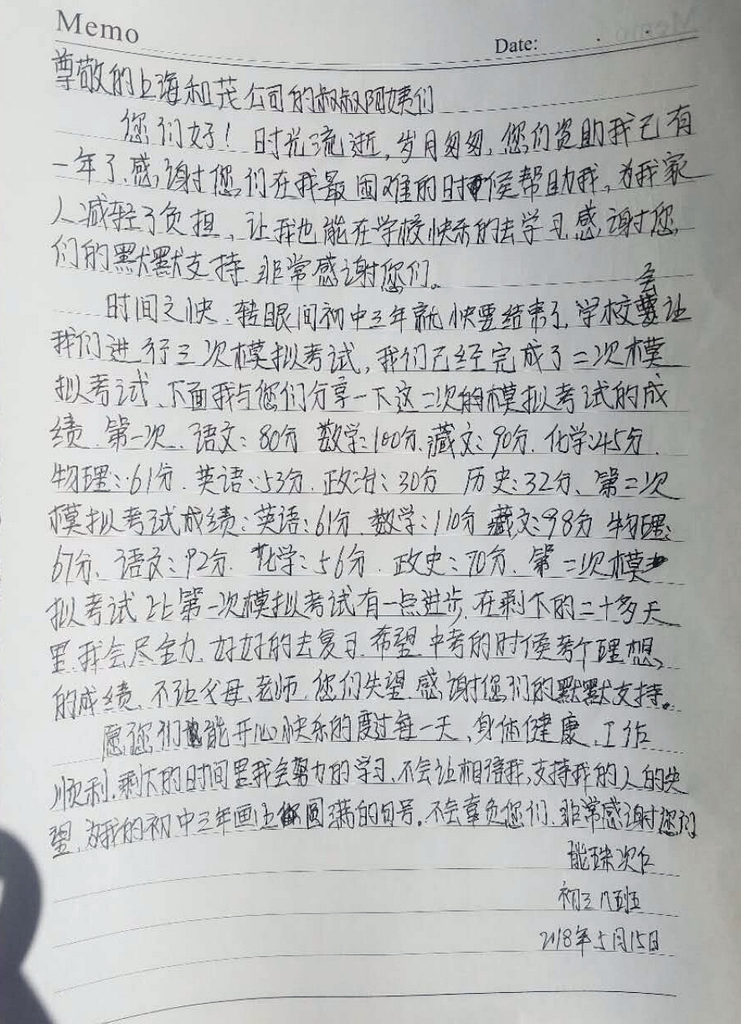 Memo
Date:
尊敬的上海和茂公司的叔叔阿姨们
您们好！时光流逝，岁月匆匆，您们资助我已有
一年了，感谢您们在我最困难的时候帮助我，为我家
人减轻了负担，让我也能在学校快乐的去学习感谢您
们的默默支持，非常感谢您们。
时间之快，转眼间初中三年就快要结束了，学校会让
我们进行三次模拟考试，我们已经完成了二次模
拟考试，下面我与您们分享一下这二次的模拟考试的成
绩，第一次，语文：80分 数学：100分，藏文：90分，化学：45分，
物理：61分，英语：53分，政治：30分 历史：32分、第二次
模拟考试成绩：英语：61分，数学：110分 藏文：98分 物理：
67分、语文：92分，化学：56分，政史：70分，第二次模
拟考试比第一次模拟考试有一点进步，在剩下的二十多天
里，我会尽全力，好好的去复习，希望中考的时候考个理想
的成绩，不让父母、老师，您们失望，感谢您们的默默支持。
愿您们能开心快乐的度过每一天，身体健康，工作
顺利，剩下的时间里我会努力的学习，不会让相信我，支持我的人的失
望，为我的初中三年画上圆满的句号。不会辜负您们，非常感谢您们
珠次仁
初三八班
2018年5月15日